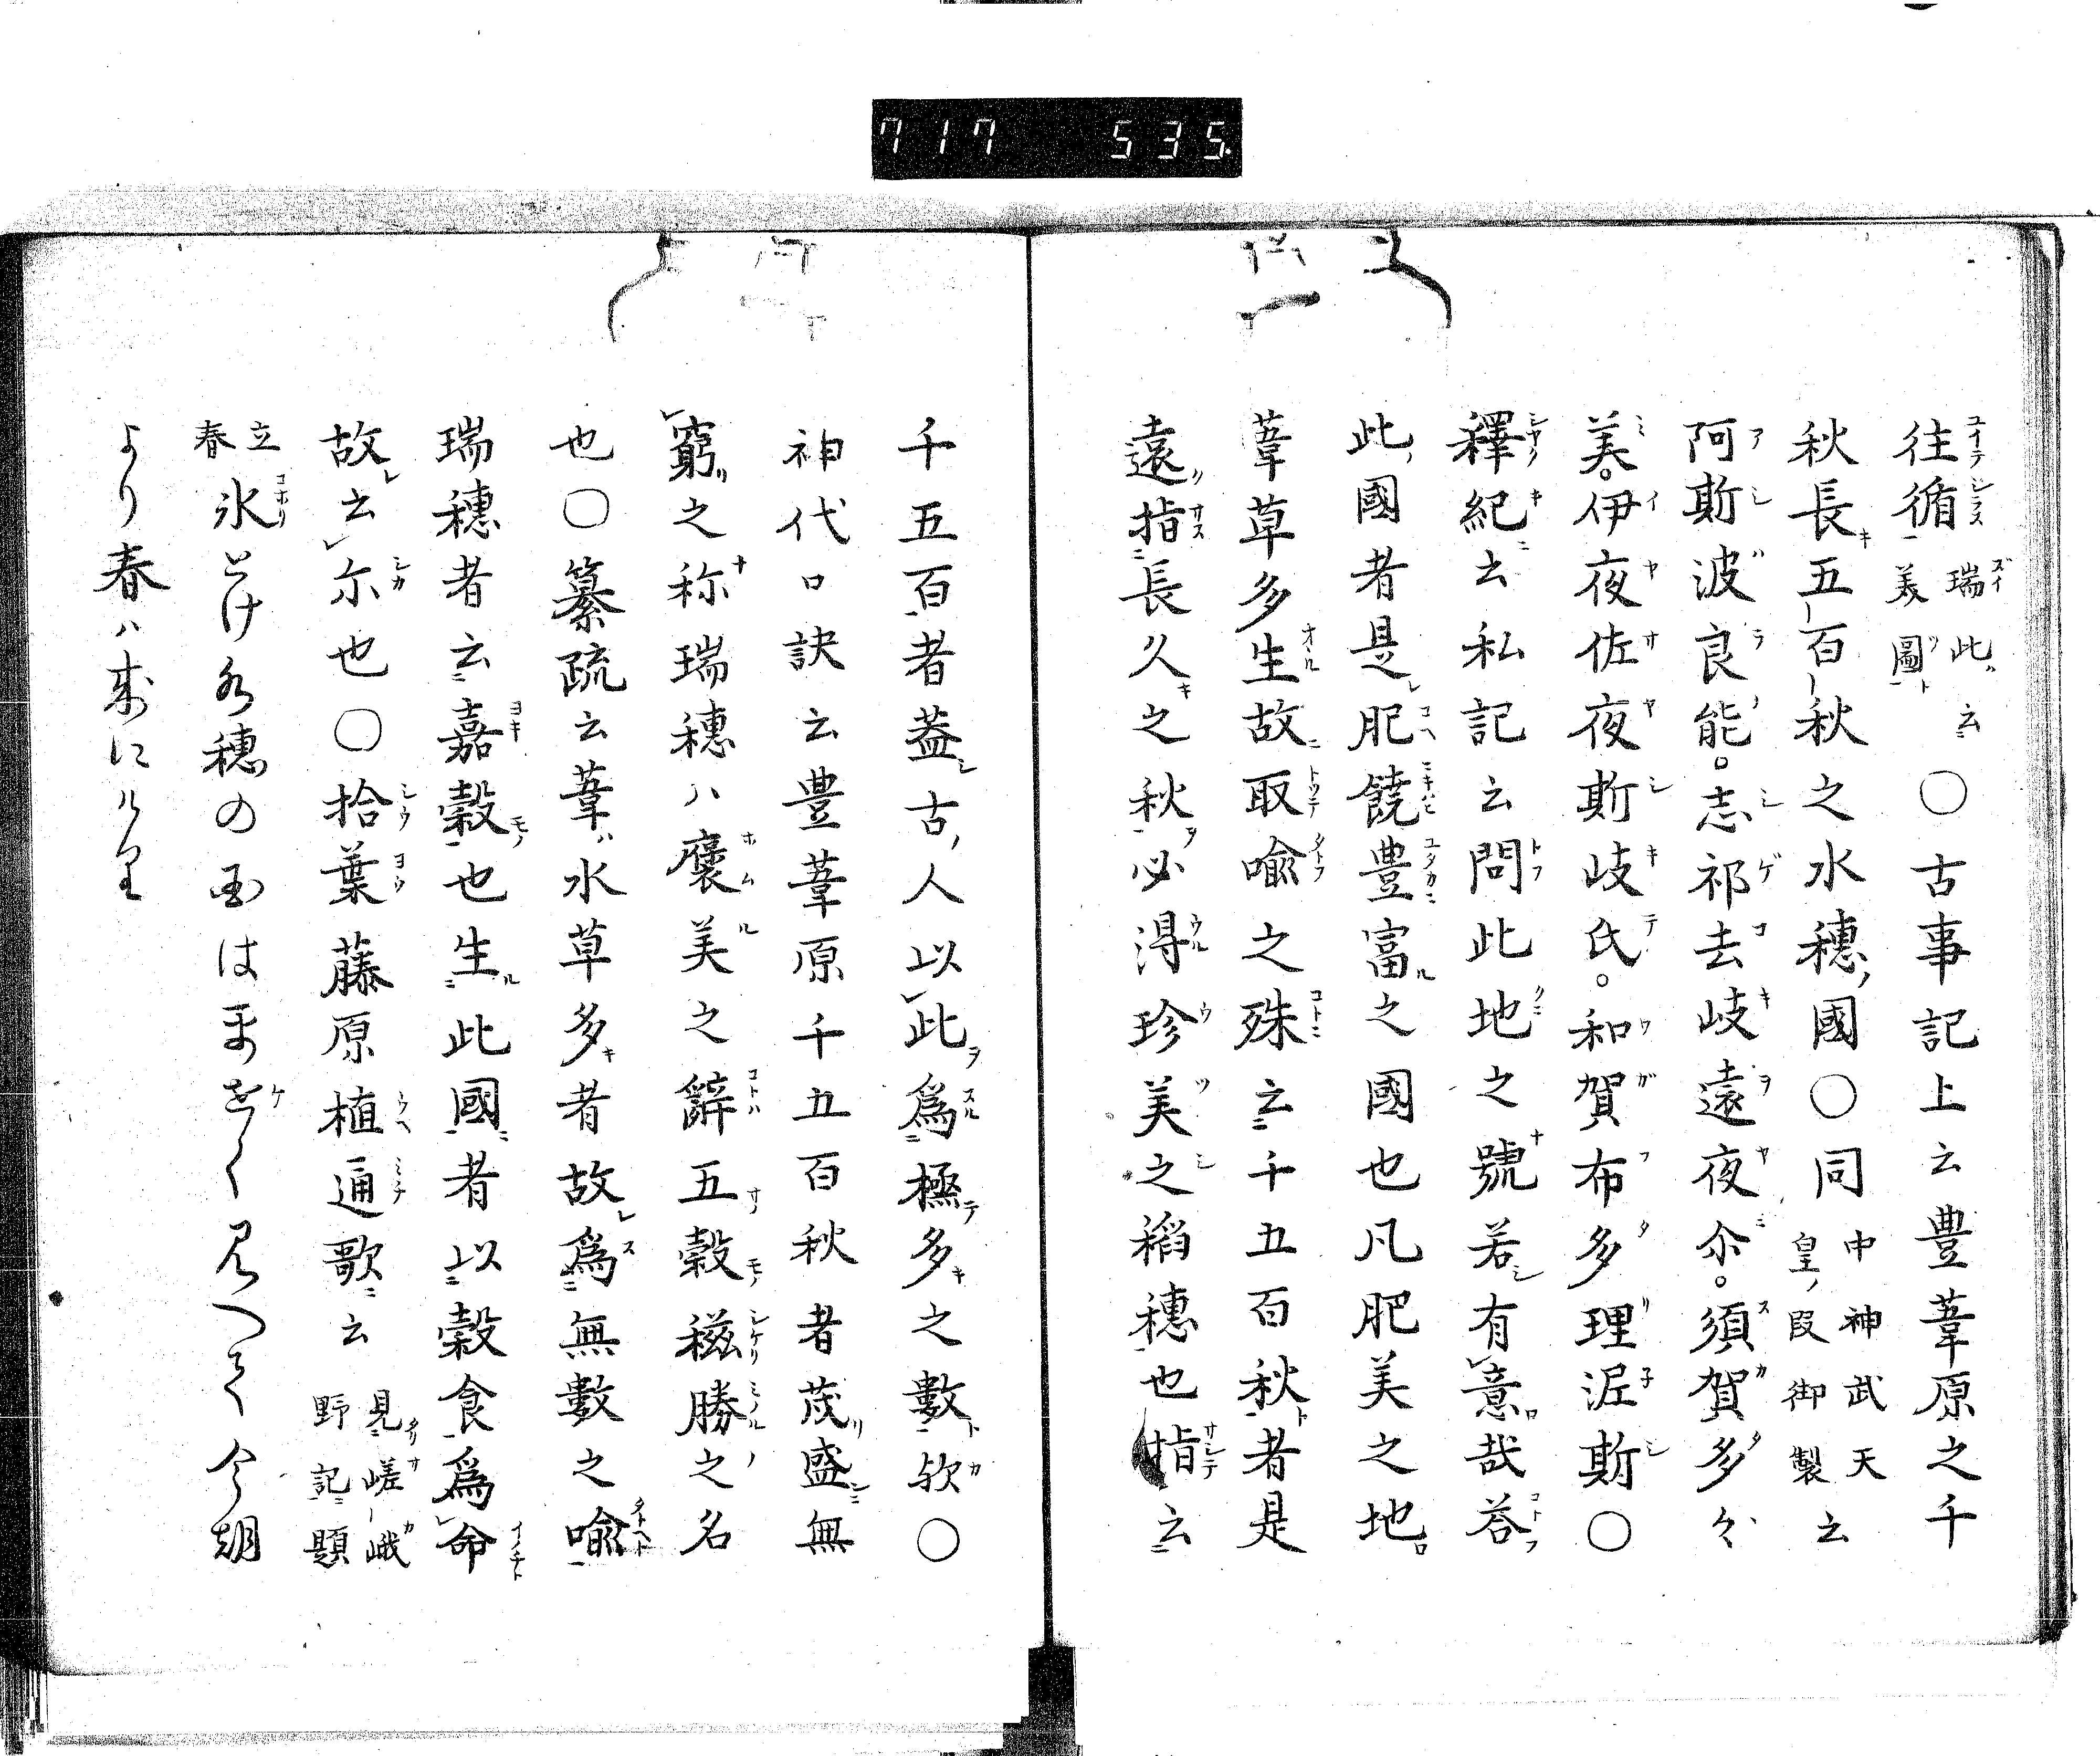 717 535
往循瑞此云美圖〇古事記上云豊葦原之千
秋長五百秋之水穗國〇同中神武天皇段御製云
阿斯波良能。志祁去岐遠夜尒。須賀多々
美。伊夜佐夜斯岐氐。和賀布多理泥斯〇
釋紀云私記云問此地之號若有意哉荅
此國者是肥饒豊富之國也凡肥美之地
葦草多生故取喩之殊云千五百秋者是
遠指長久之秋必淂珍美之稻穗也指云
千五百者葢古人以此爲極多之數欤〇
神代口訣云豊葦原千五百秋者茂盛無
窮之称瑞穗ハ襃美之辭五穀稵勝之名
也〇纂疏云葦水草多者故爲無數之喩
瑞穗者云嘉穀也生此國者以穀食爲命
故云尒也〇拾葉藤原植通歌云見嵯峨野記題
立春氷とけ水穗の国はまづく見へて今朝
より春ハ来にけり